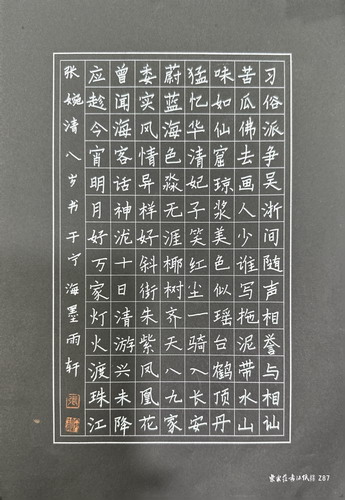 习俗派争吴浙间随声相誉与相讪
苦瓜佛去画人少谁写拖泥带水山
味如仙窟琼浆美色似瑶台鹤顶丹
猛忆华清妃子笑红尘一骑入长安
蔚蓝海色淼无涯椰树齐天八九家
委实风情异样好斜街朱紫凤凰花
曾闻海客话神泷十日清游兴未降
应趁今宵明月好万家灯火渡珠江
张婉清八岁书于宁海墨雨轩
287